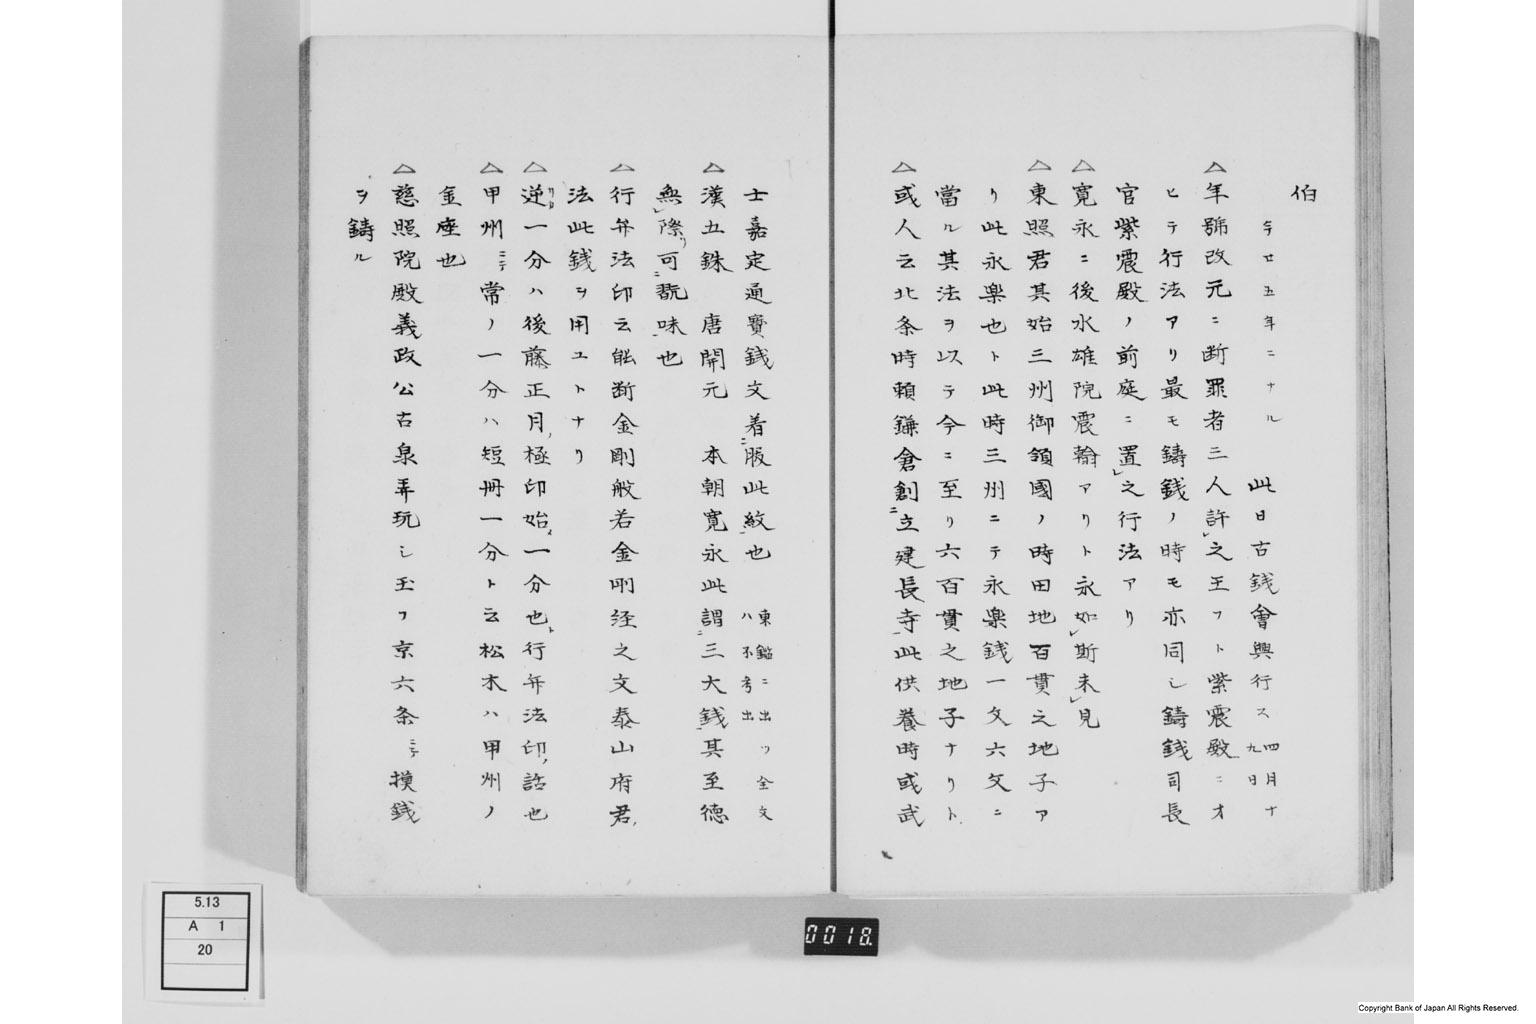 伯
今廿五年ニナル 此日古錢會興行ス四月十九日
△年號改元ニ断罪者三人許之玉フト紫震殿ニオ
ヒテ行法アリ最モ鑄錢ノ時モ亦同シ鑄錢司長
官紫震殿ノ前庭ニ置之行法アリ
△寛永ニ後水雄院震翰アリト永如斯未見
△東照君其始三州御領國ノ時田地百貫之地子ア
リ此永楽也ト此時三州ニテ永楽錢一文六文ニ
當ル其法ヲ以テ今ニ至リ六百貫之地子ナリト
△或人云北条時頼鎌倉創立建長寺此供養時或武
士嘉定通寶錢文着服此紋也 東鑑ニ出ツ全文ハ不考出
△漢五銖 唐開元 本朝寛永此謂三大錢其至徳
無際可翫味也
△行年法印云能断金剛般若金剛経之文泰山府君
法此錢ヲ用ユトナリ
△逆一分ハ後藤正月極印始一分也ト行年法印話也
△甲州ニテ常ノ一分ハ短冊一分ト云松木ハ甲州ノ
金座也
△慈照院殿義政公古泉弄玩シ玉フ京六条ニテ摸錢
ヲ鑄ル
5.13
A 1
20
0018.
Copyright Bank of Japan All Rights Reserved.